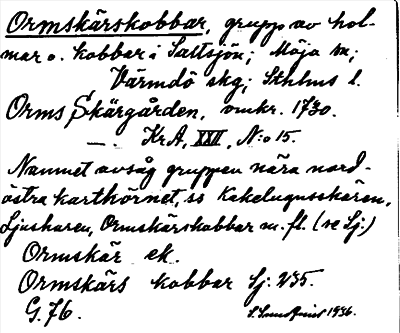 Ormskärskobbar, grupp av hol-
mar o. kobbar i Saltsjön; Möja sn;
Värmdö skg; Sthlms l.
Orms Skärgården, omkr. 1730.
— KrA, XXII, N:o 15.
Namnet avsåg gruppen nära nord-
östra karthörnet, ss Kakelugnsskären,
Ljusharen, Ormskärskobbar m. fl. (se Sj:)
Ormskär ek.
Ormskärs kobbar Sj: 235.
G. 76.
1936.